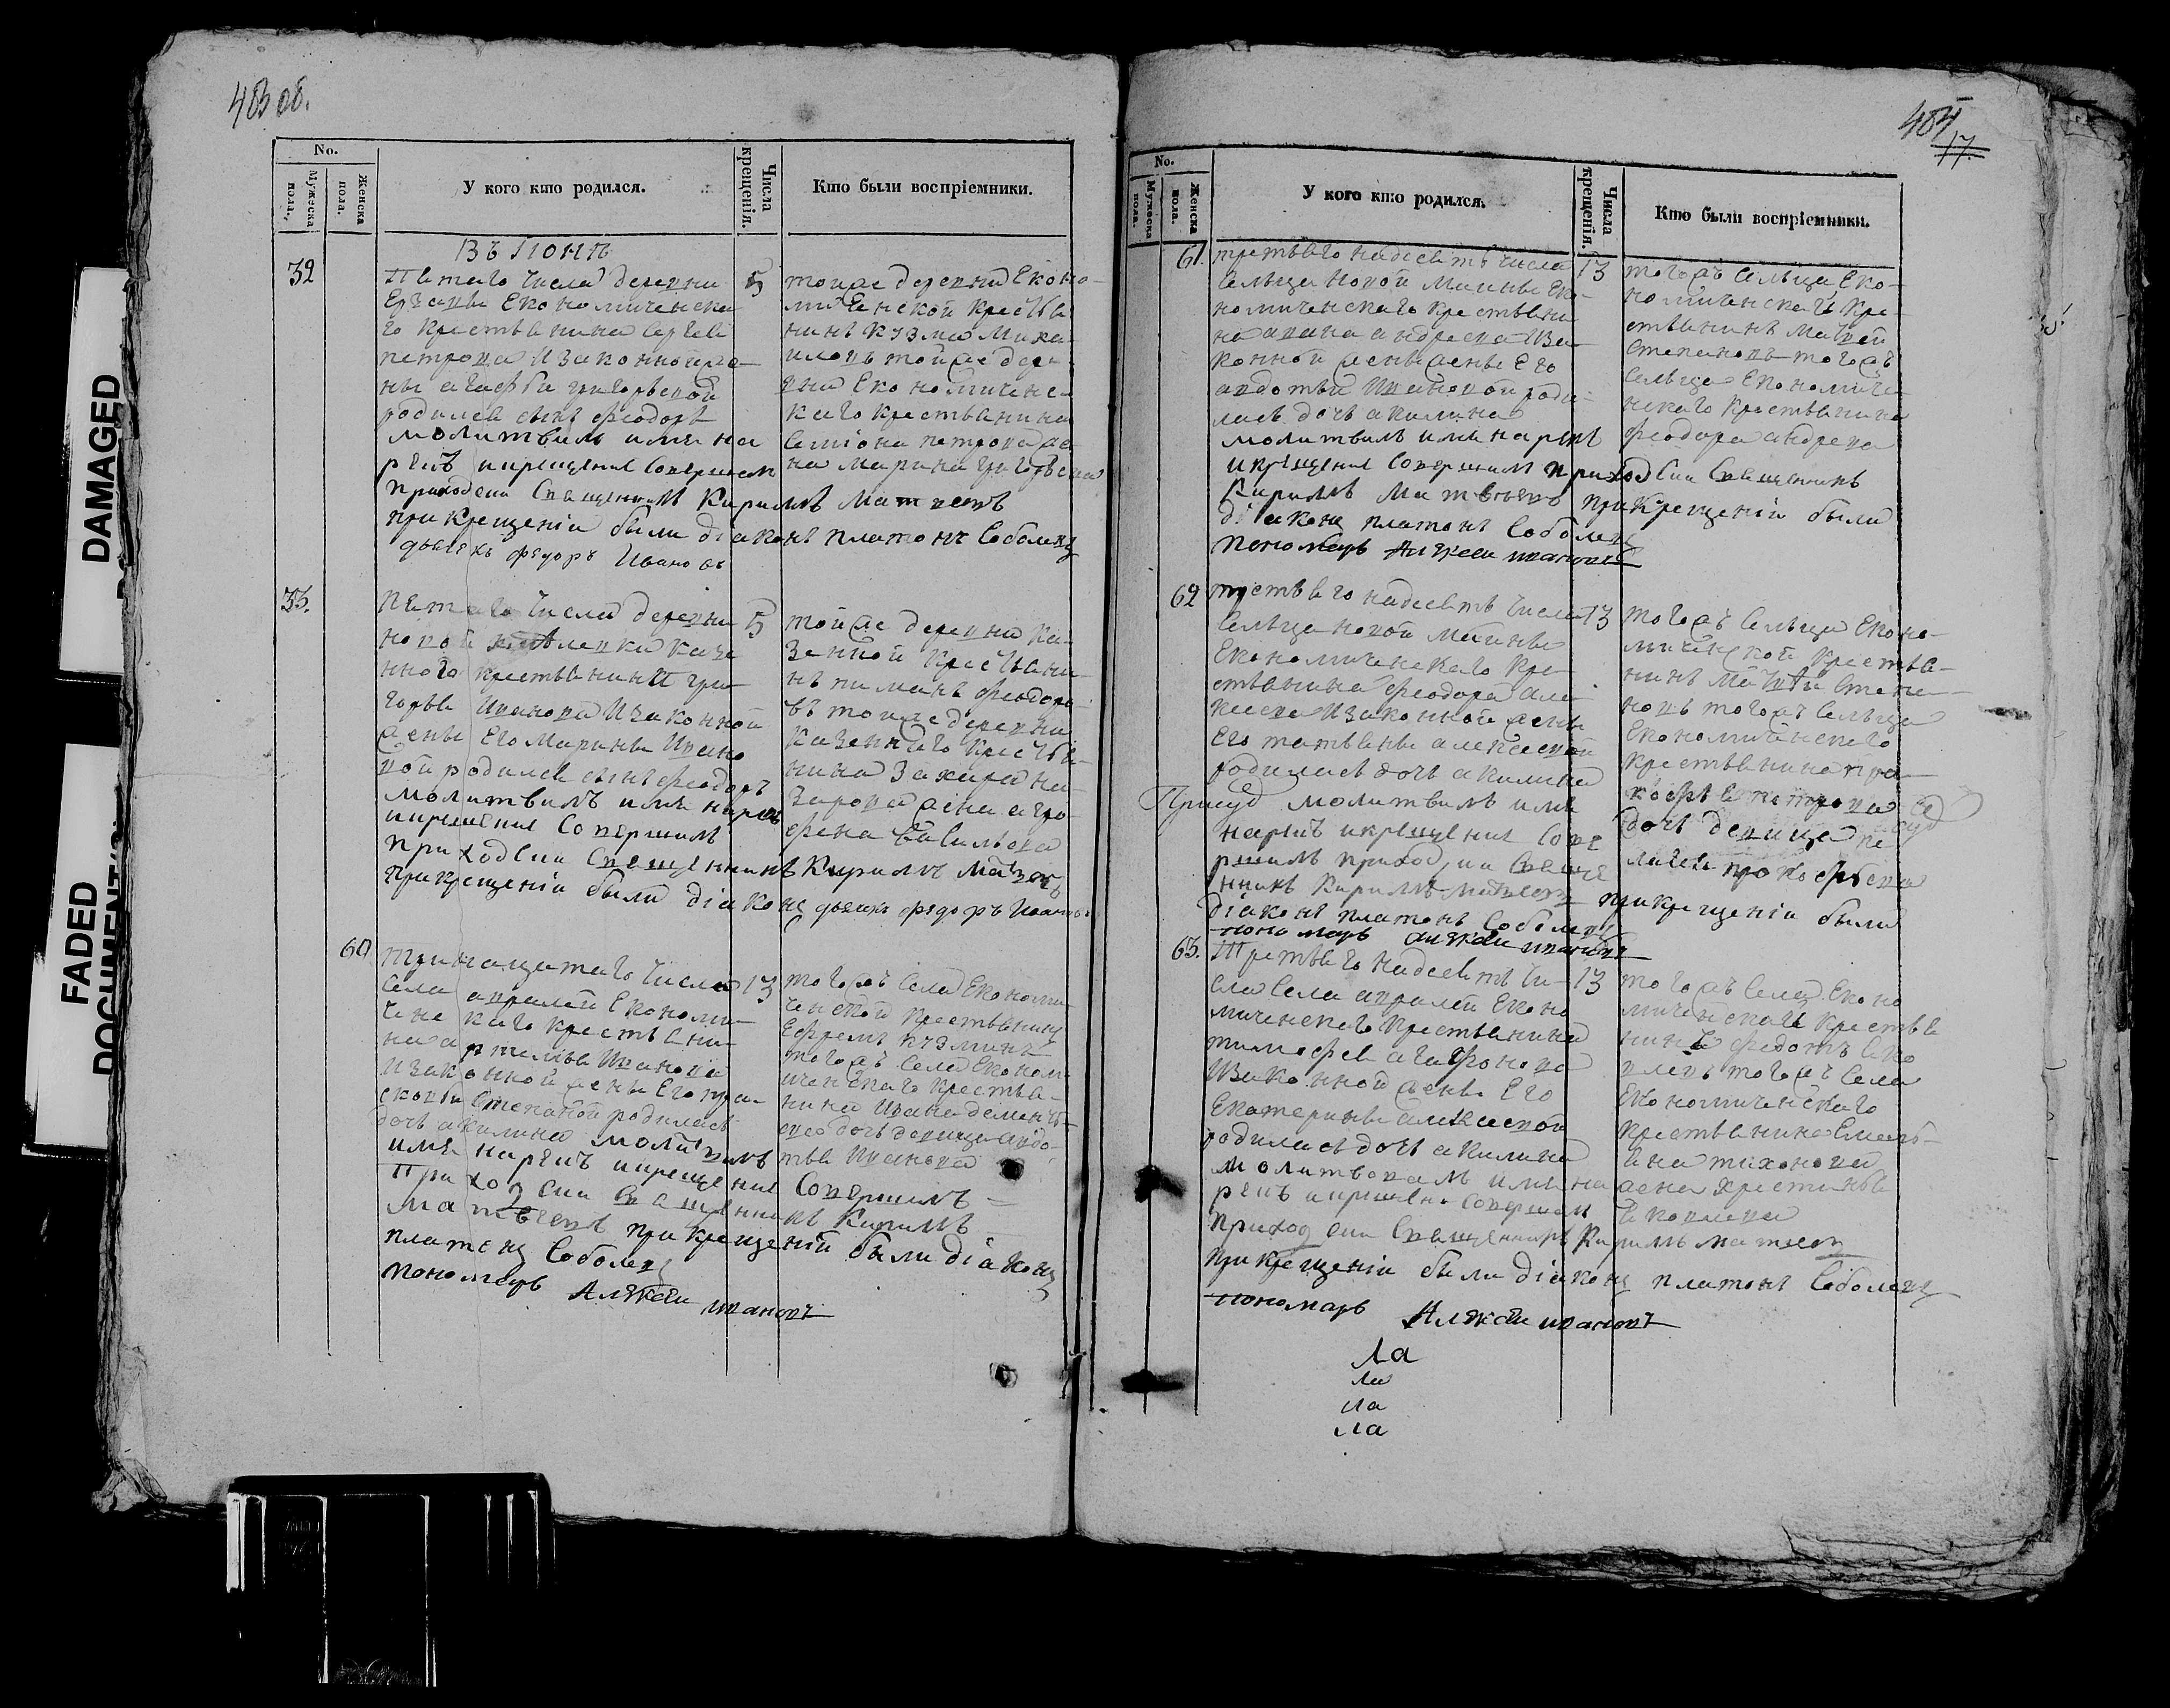 483 об.
No.
Мужеска пола.
Женска пола.
У кого кто родился.
Числа крещенія.
Кто были воспріемники.
Въ Іюнѣ
32
Пятаго числа деревни
Економическа
го крестьянина Сергея
Петрова изаконной же
ны Агафьи Григорьевой
родился сынъ Феодоръ
молитвилъ имя на
рекъ икрещение совершилъ
приходски священникъ Кирилъ Матвеевъ
при крещеніи были діаконъ Платонъ Соболевъ
дьячекъ Федоръ Ивановъ
5
тойже деревни Еконо-
мической крестья
нинъ Кузма Миха
иловъ тойже дере
вни Економичес
каго крестьянина
Семіона Петрова же
на Марина Григорьева
33.
Пятаго числа деревни
новой казе
нного крестьянина Гри
горья Иванова изаконной
жены Его Марины Ивано
вой родился сынъ Феодоръ
молитвилъ имя нарекъ
икрещение совершилъ
приходски священникъ Кирилъ Матвеевъ
при крещеніи были діаконъ дьячекъ Федоръ Ивановъ
5
тойже деревни ка-
зенной крестьяни
нъ Пиманъ Феодоро
въ тойже деревни
казеннаго крестья
нина Захара На-
зарова жена Агро
фена Савильева
60
Тринацатаго числа
села Апралей Економи
ческаго крестьяни
на Артемья Иванова
изаконной жены Его Пра
сковьи Степаной родилась
дочь Акилина молитвилъ
имя нарекъ икрещения совершилъ
приходски священникъ Кирилъ
Матвеевъ при крещеній были діаконъ
Платонъ Соболевъ
пономарь Алексеи Ивановъ
13
тогожъ села Економи
ческой крестьянинъ
Ефремъ Кузминъ
тогожъ села Економ
ическаго крестья
нина Ивана Дементь
ева дочь девица Авдо
тья Иванова
484
17.
No.
Мужеска пола.
Женска пола.
У кого кто родился.
Числа крещенія.
Кто были воспріемники.
61.
третьяго надесять числа
сельца Новой Маины Еко
номическаго крестьяни
на Ивана Андреева иза
конной жены Его
Авдотьи Ивановой роди
лась дочь Акилина
молитвилъ имя нарекъ
икрещение совершилъ приходски священникъ
Кирилъ Матвеевъ при крещеній были
діаконъ Платонъ Соболевъ
пономарь Алексеи Ивановъ
13
тогожъ сельца Еко-
номическаго кре-
стьянинъ Матвей
Степановъ тогожъ
сельца Економиче
нскаго крестьянина
Феодора Андреева
62
третьяго надесять числа
сельца Новой Маины
Економическаго кре
стьянина Феодора Але
ксеева изаконной жены
Его Татьяны Алексеевой
родилась дочь Акилина
молитвилъ имя
нарекъ икрещения сове
ршилъ приходски свяще
нникъ Кирилъ Матвеевъ при крещеніи были
діаконъ Платонъ Соболевъ
пономарь Алексеи Ивановъ
13
тогожъ сельца Еконо-
мической крестья-
нинъ Матвей Степа
новъ тогожъ сельца
Економическаго
крестьянина Про
кофья Петрова
дочь девица Пе
лагея Прокофьева
63.
Третьяго надесять чи-
сла села Апралей Еконо
мическаго крестьянина
Тимофея Агафонова
изаконной жены Его
Екатерины Алексеевой
родилась дочь Акилина
молитвовалъ имя на
рекъ икрещение совершилъ
приходски священникъ Кирилъ Матвеевъ
при крещеніи были діаконъ Платонъ Соболевъ
пономарь Алексеи Ивановъ
13
тогожъ села Еконо
мическай крестья
нинъ Федотъ Яко
влевъ тогожъ села
Економическаго
крестьянина Емель
яна Тихонова
жена Христинья
Яковлева
Ла
ла
ла
ла
DAMAGED
FADED
DOCUMENT(S)